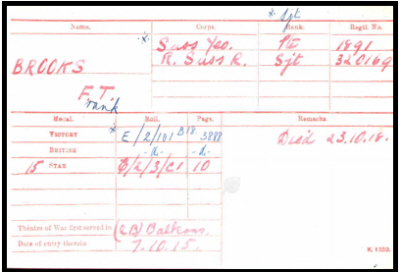 * Sjt
Name. Corps. Rank. Regtl. No.
* Suss Yeo. Pte 1891
BROOKS R. Suss R. Sjt 320169
F.T.
rank
Medal. Roll. Page. Remarks
VICTORY * E/2/101 B18 3888 Died 23.10.18.
BRITISH -"- -"-
15 STAR E/2/3/C1 10
Theatre of War first served in (2B) Balkans
Date of entry therein 7.10.15.
K. 1380.